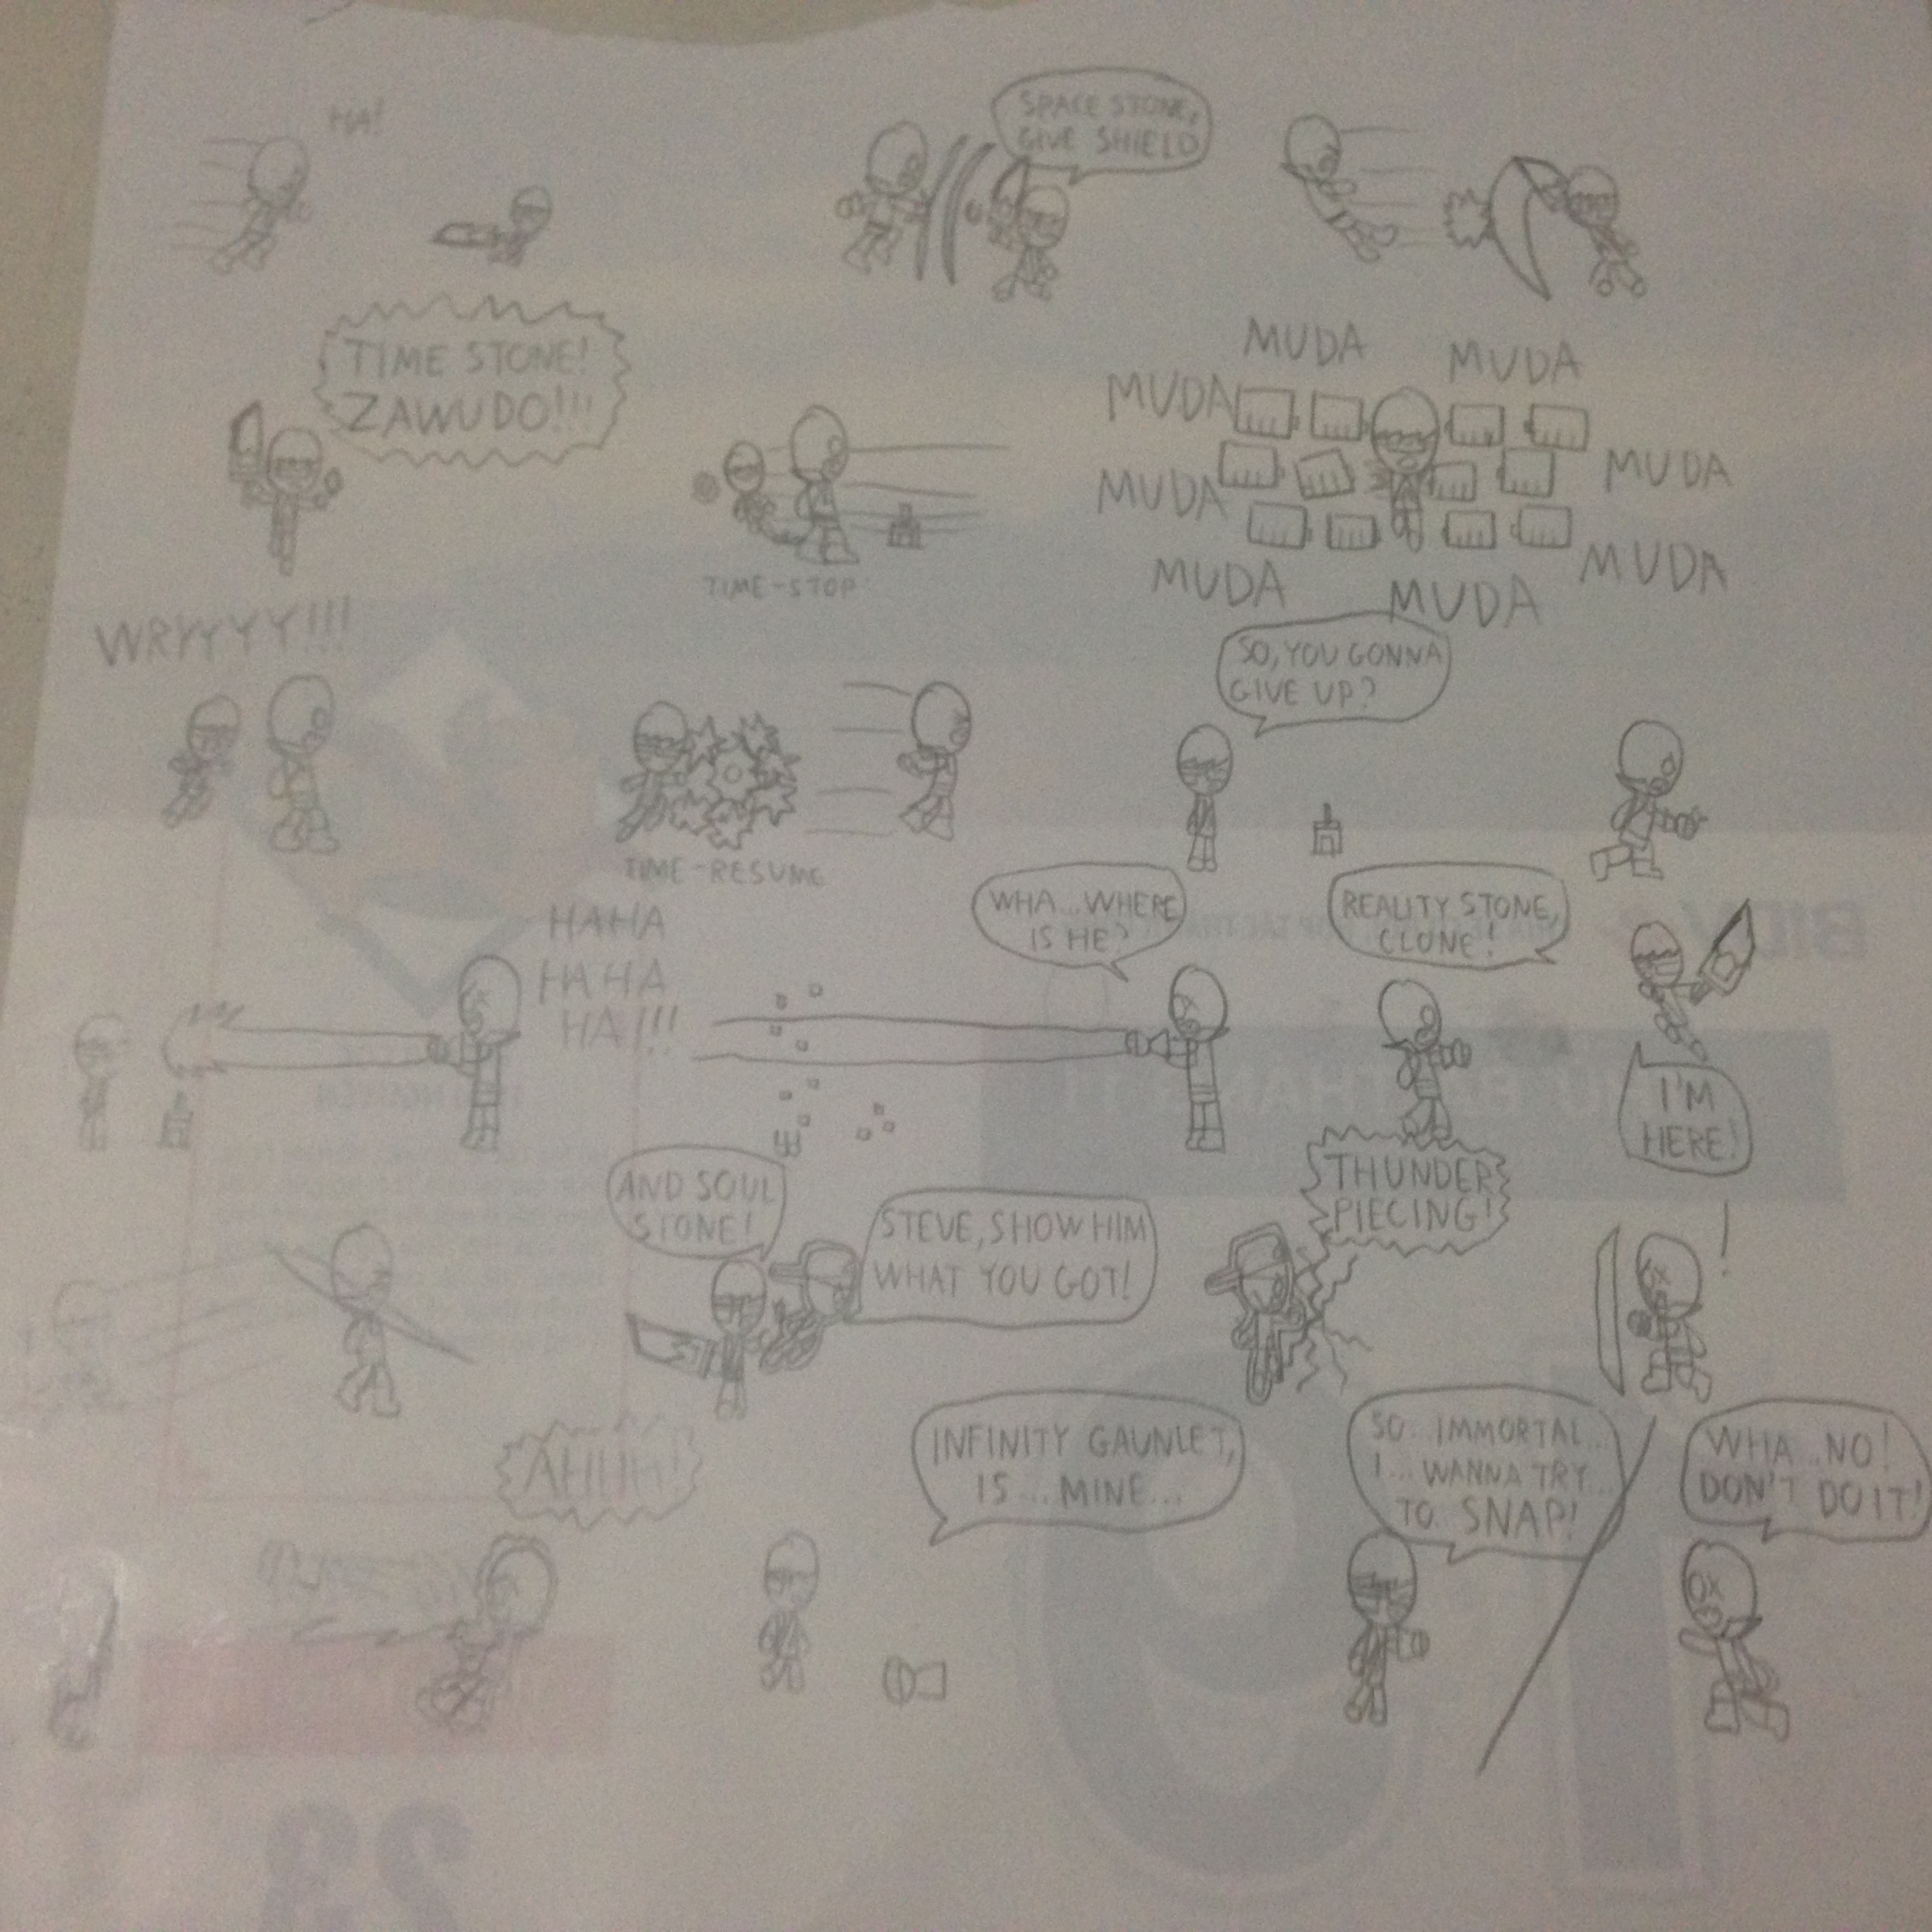 HA!
SPACE STONE,
GIVE SHIELD
TIME STONE!
ZAWUDO!!!
TIME-STOP
MUDA
MUDA
MUDA
MUDA
MUDA
MUDA
MUDA
MUDA
WRYYYY!!!
TIME-RESUME
SO, YOU GONNA
GIVE UP?
HAHA
HAHA
HA!!!
WHA...WHERE
IS HE?
REALITY STONE,
CLONE!
I'M
HERE!
AND SOUL
STONE!
STEVE, SHOW HIM
WHAT YOU GOT!
THUNDER
PIECING!
!
AHUH!
INFINITY GAUNLET,
IS...MINE...
SO...IMMORTAL...
I...WANNA TRY...
TO SNAP!
WHA..NO!
DON'T DO IT!
23